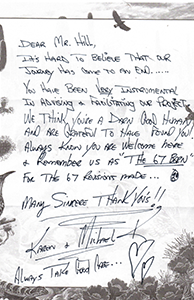 Dear Mr. Hill,
It's hard to believe that our
journey has come to an end......
You have been very instrumental
in advising & facilitating our project
We think you're a darn good human
and are grateful to have found you!
Always know you are welcome home
& remember us as "The 67 Bdrn"
for the 67 revisions made...
Many sincere thank you's!!
Karen & Michael
Always take good care...